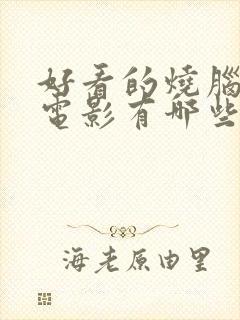 好看的燒腦
電影有哪些
海老原由里